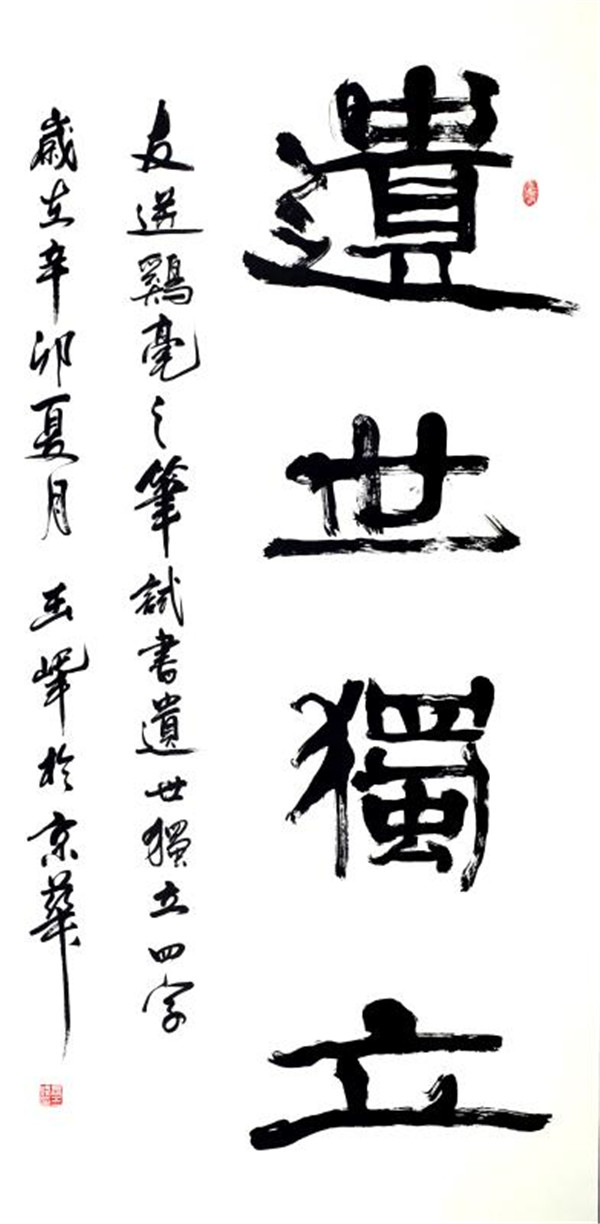 遺世獨立
友送鷄毫之筆試書遺世獨立四字
歲在辛卯夏月玉峰於京華